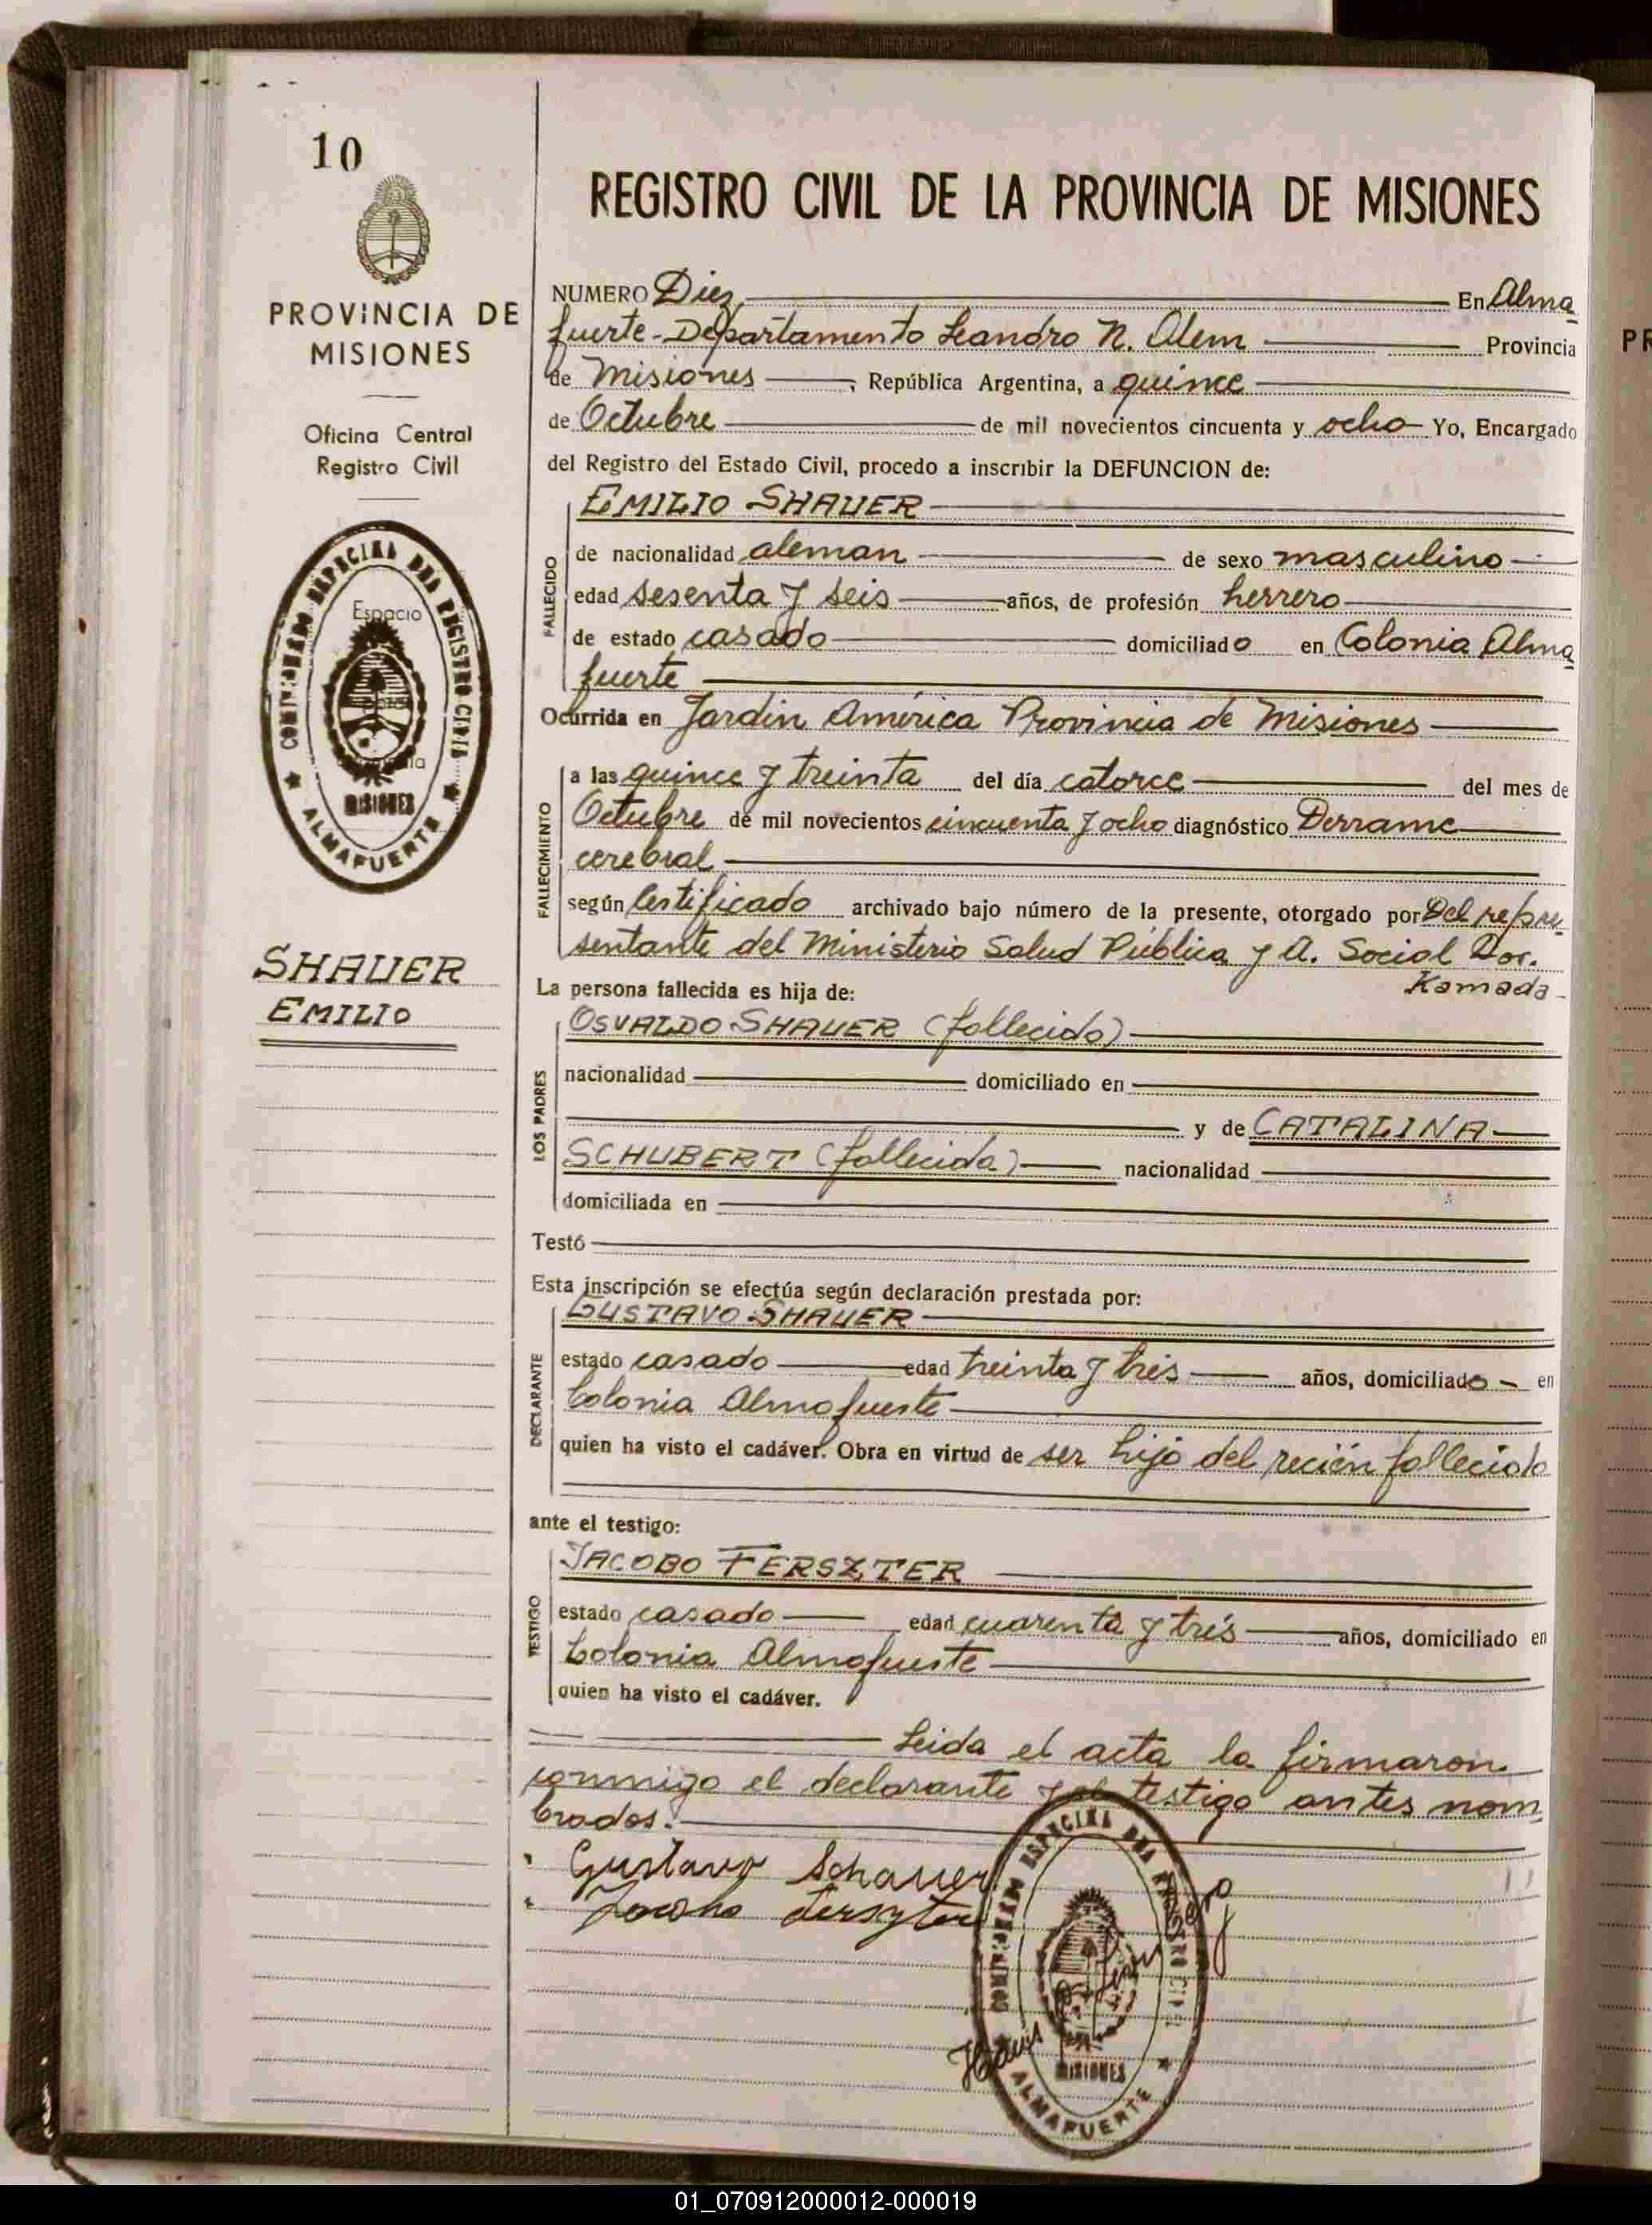 10
PROVINCIA DE
MISIONES
Oficina Central
Registro Civil
COMISIONADO ESPECIAL DEL REGISTRO CIVIL
Espacio
MISIONES
ALMAFUERTE
SHAUER
EMILIO
REGISTRO CIVIL DE LA PROVINCIA DE MISIONES
NUMERO Diez En Alma
fuerte-Departamento Leandro N. Alem Provincia
de Misiones, República Argentina, a quince
de Octubre de mil novecientos cincuenta y ocho Yo, Encargado
del Registro del Estado Civil, procedo a inscribir la DEFUNCION de:
EMILIO SHAUER
FALLECIDO
de nacionalidad aleman de sexo masculino
edad sesenta y seis años, de profesión herrero
de estado casado domiciliado en Colonia Alma
fuerte
Ocurrida en Jardin América Provincia de Misiones
FALLECIMIENTO
a las quince y treinta del día catorce del mes de
Octubre de mil novecientos cincuenta y ocho diagnóstico Derrame
cerebral
según Certificado archivado bajo número de la presente, otorgado por Del repre
sentante del Ministerio Salud Pública y A. Social Dor.
Kamada-
La persona fallecida es hija de:
LOS PADRES
OSVALDO SHAUER (fallecido)
nacionalidad domiciliado en
y de CATALINA
SCHUBERT (fallecida) nacionalidad
domiciliada en
Testó
Esta inscripción se efectúa según declaración prestada por:
DECLARANTE
GUSTAVO SHAUER
estado casado edad treinta y tres años, domiciliado en
Colonia Almafuerte
quien ha visto el cadáver. Obra en virtud de ser hijo del recién fallecido
ante el testigo:
TESTIGO
JACOBO FERSZTER
estado casado edad cuarenta y trés años, domiciliado en
Colonia Almafuerte
quien ha visto el cadáver.
Leida el acta la firmaron
conmigo el declarante y el testigo antes nom
brados.
Gustavo Schauer
Jacobo Ferszter
MISIONES
ALMAFUERTE
01_070912000012-000019